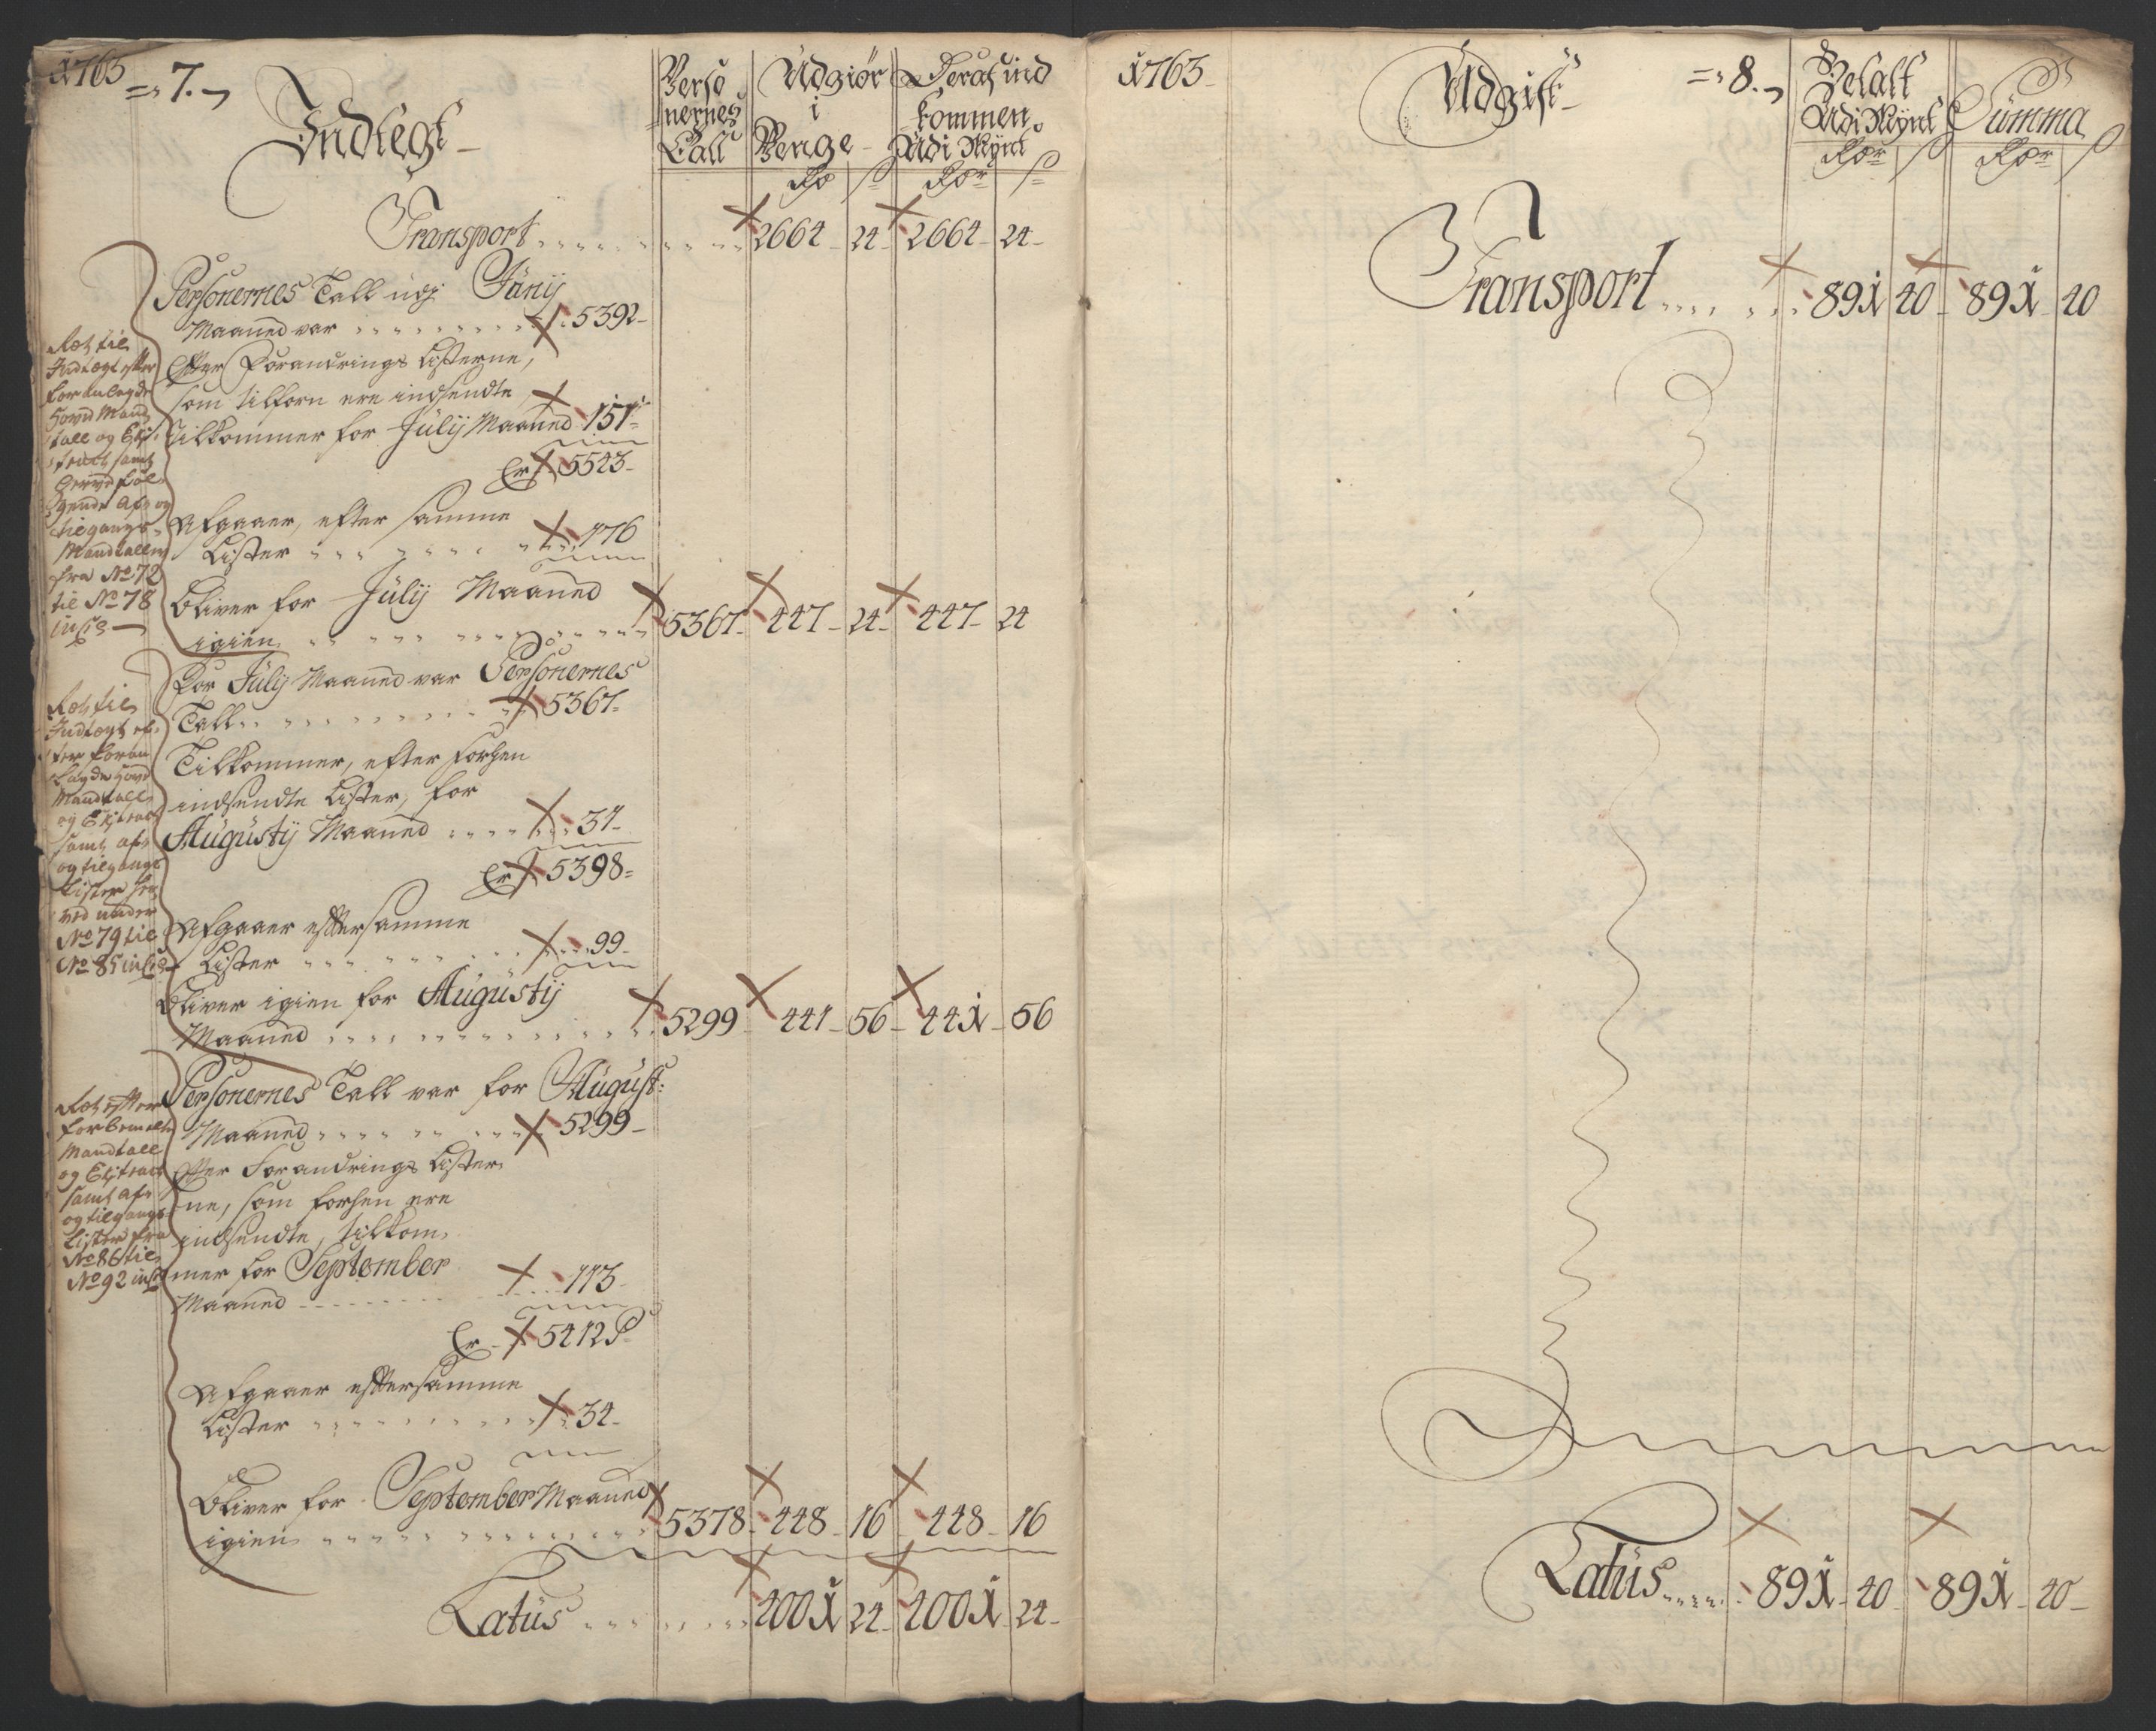 1763
=, 7. ,
Indtegt
Perso
nernes
Tall
Udgiør
i
Penge
Deraf ind
kommen
Udi Mynt
Rdr ß
Rdr ß
Transport 2664 24 2664 24
Personernes Tall udj Junij
Maaned var 5392
Efter Forandrings Listerne,
som tilforn ere indsendte
tilkommer for Julij Maaned 151
Er 5543
Afgaaer, efter samme
Lister 176
Bliver for Julij Maaned
igien 5367 447 24 447 24
For Julij Maaned var Personernes
Tall 5367
Tilkommer, efter forhen
indsendte Lister, for
Augustij Maaned 31
Er 5398
Afgaaer efter samme
Lister 99
Bliver igien for Augustij
Maaned 5299 441 56 441 56
Personernes Tall var for August:
Maaned 5299
Efter Forandrings Lister
ne, som forhen ere
indsendte, tilkom
mer for September
Maaned 113
Er 5412 P
Afgaaer efter samme
Lister 34
Bliver for September Maaned
igien 5378 448 16 448 16
Latus 4001 24 4001 24
Ret til
Indtegt efter
foranlagde
Hoved Mand
tall og Ext
tract samt
herved føl
gende Af og
tilgangs
Mandtaller
fra No 72
til No 78
incl:
Ret til
Indtegt ef
ter foran
lagde Hoved
Mandtall
og Extract
samt af
og tilgangs
Lister her
ved under
No 79 til
No 85 incl:
Ret efter
forbemelte
Mandtall
og Extract
samt af
og tilgangs
Lister fra
No 86 til
No 92 incl:
1763
Udgift
=, 8. ,
Betalt
Udi Mynt
Summa
Rdr ß
Rdr ß
Transport 891 40 891 40
Latus 891 40 891 40